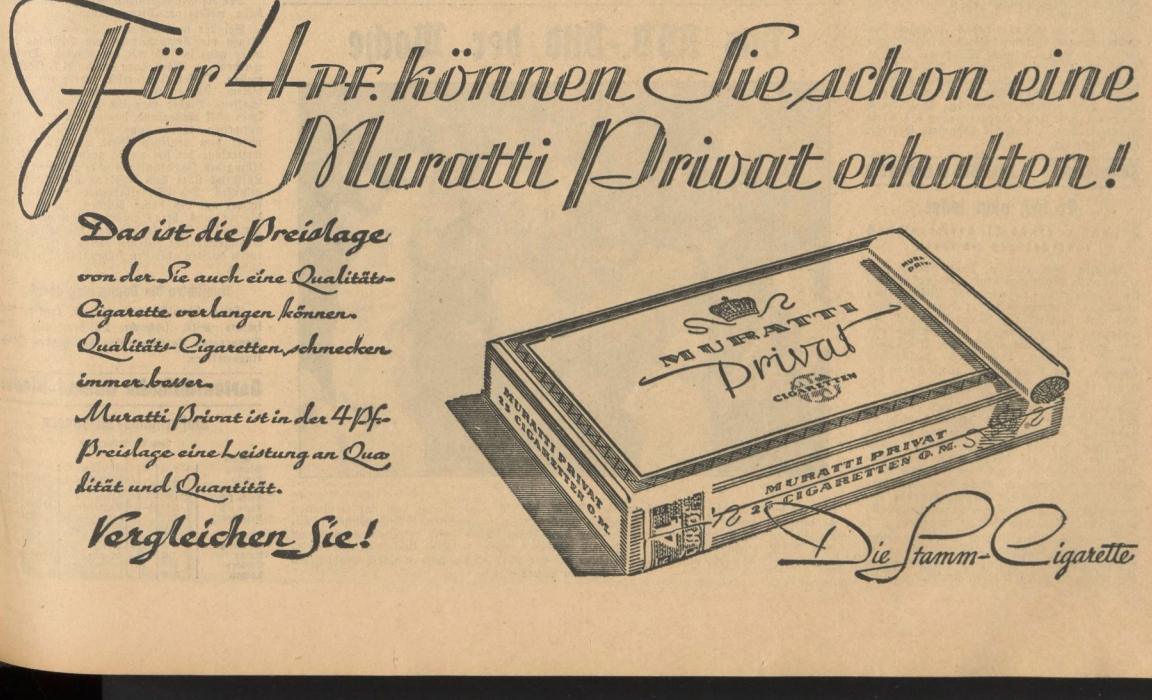 Für 4 PF. können Sie schon eine
Muratti Privat erhalten!
Das ist die Preislage
von der Sie auch eine Qualitäts-
Cigarette verlangen können.
Qualitäts-Cigaretten schmecken
immer besser.
Muratti Privat ist in der 4 Pf-
Preislage eine Leistung an Qua
lität und Quantität.
Vergleichen Sie!
MURATTI
Privat
CIGARETTEN
MURATTI PRIVAT
25 CIGARETTEN O.M.
MURATTI PRIVAT
25 CIGARETTEN O.M.
Die Stamm-Cigarette